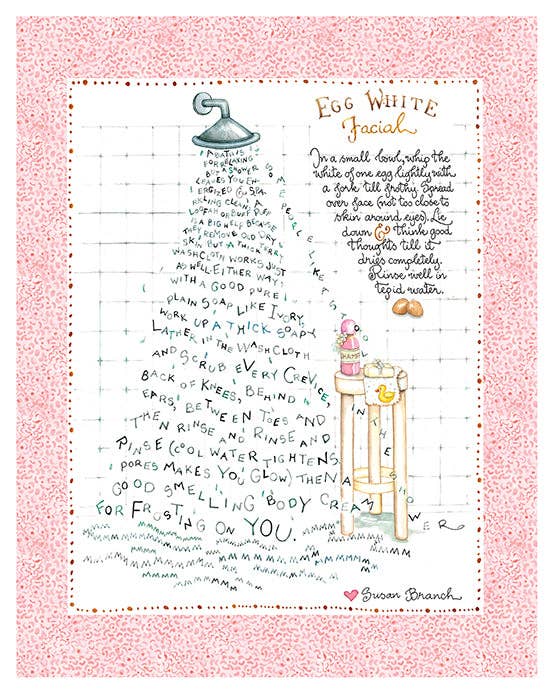 Egg White
Facial
In a small bowl, whip the
white of one egg lightly with
a fork till frothy. Spread
over face (not too close to
skin around eyes). Lie
down & think good
thoughts till it
dries completely.
Rinse well in
tepid water.
A BATH IS
FOR RELAXING
BUT A SHOWER
LEAVES YOU EN-
ERGIZED & SPA-
RKLING CLEAN. A
LOOFAH OR BUFF PUFF
IS A BIG HELP BECAUSE
THEY REMOVE OLD DRY
SKIN BUT A THICK TERRY
WASHCLOTH WORKS JUST
AS WELL. EITHER WAY,
WITH A GOOD PURE
PLAIN SOAP LIKE IVORY,
WORK UP A THICK SOAPY
LATHER IN THE WASHCLOTH
AND SCRUB EVERY CREVICE,
BACK OF KNEES, BEHIND
EARS, BETWEEN TOES AND
THEN RINSE AND RINSE AND
RINSE (COOL WATER TIGHTENS
PORES MAKES YOU GLOW) THEN A
GOOD SMELLING BODY CREAM
FOR FROSTING ON YOU.
SOME PEOPLE LIKE A STOOL IN THE SHOWER
SHAMP
MMMMMMM
MMMMMMMMM
Susan Branch